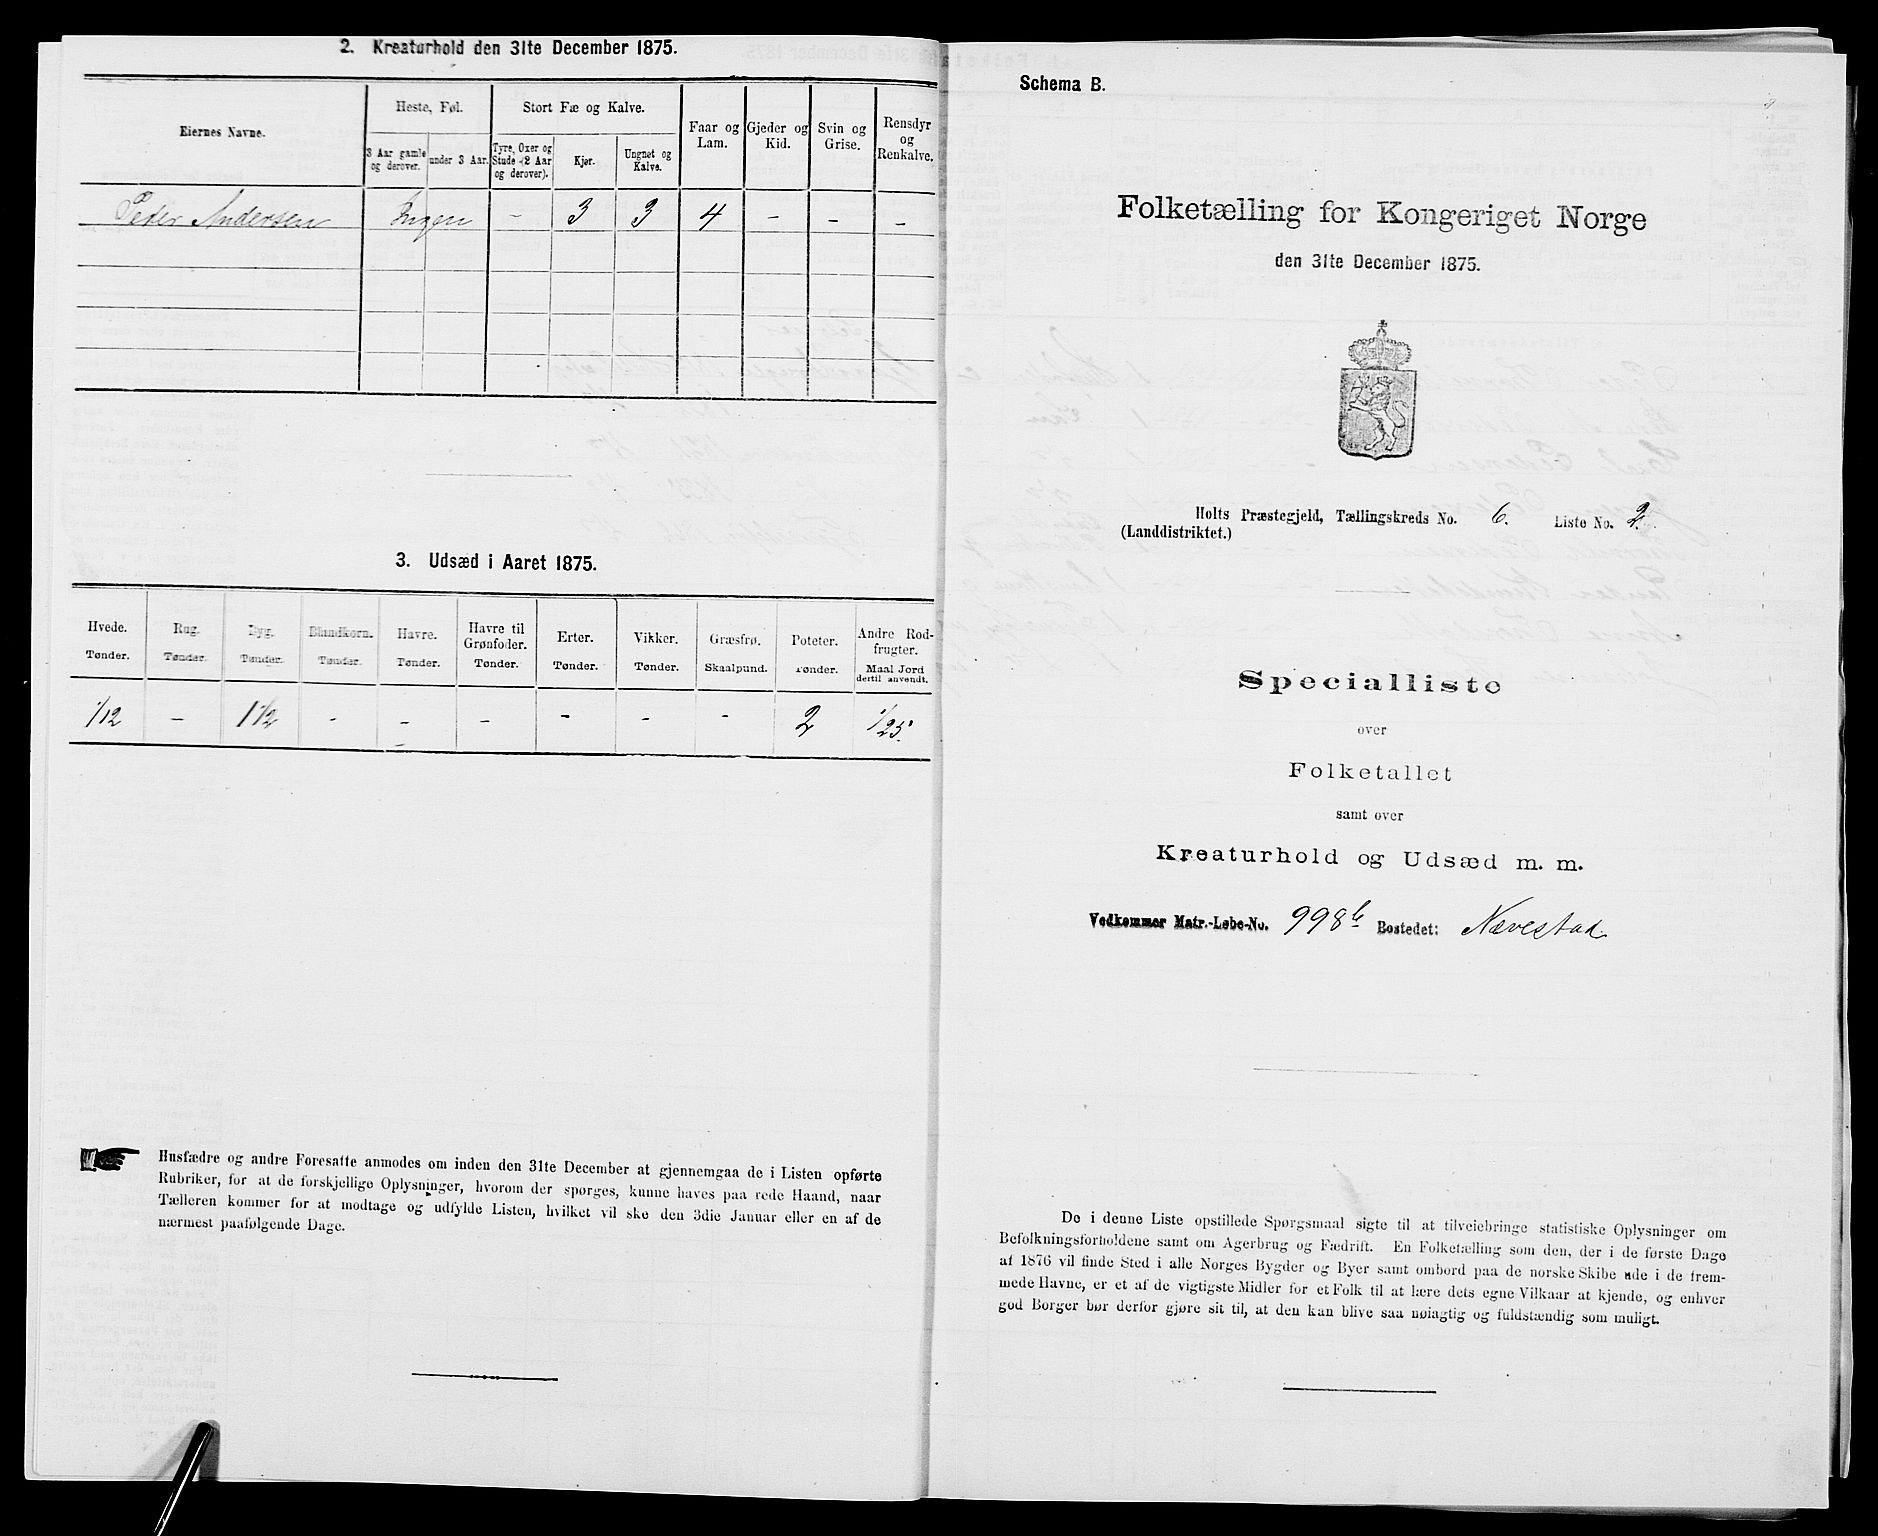 2. Kreaturhold den 31te December 1875.
Eiernes Navne.
Heste, Føl.
3 Aar gamle og derover.
under 3 Aar.
Stort Fæ og Kalve.
Tyre, Oxer og Stude (2 Aar og derover).
Kjør.
Ungnet og Kalve.
Faar og Lam.
Gjeder og Kid.
Svin og Grise.
Rensdyr og Renkalve.
Peder Andersen Ingen - 3 3 4 - - -
3. Udsæd i Aaret 1875.
Hvede. Tønder.
Rug. Tønder.
Byg. Tønder.
Blandkorn. Tønder.
Havre. Tønder.
Havre til Grønfoder. Tønder.
Erter. Tønder.
Vikker. Tønder.
Græsfrø. Skaalpund.
Poteter. Tønder.
Andre Rodfrugter. Maal Jord dertil anvendt.
1/12 - 1 1/2 - - - - - - 2 1/25.
Husfædre og andre Foresatte anmodes om inden den 31te December at gjennemgaa de i Listen opførte
Rubriker, for at de forskjellige Oplysninger, hvorom der spørges, kunne haves paa rede Haand, naar
Tælleren kommer for at modtage og udfylde Listen, hvilket vil ske den 3die Januar eller en af de
nærmest paafølgende Dage.
Schema B.
Folketælling for Kongeriget Norge
den 31te December 1875.
Holts Præstegjeld, Tællingskreds No. 6. Liste No. 2.
(Landdistriktet.)
Specialliste
over
Folketallet
samt over
Kreaturhold og Udsæd m. m.
Vedkommer Matr.-Løbe-No. 998b Bostedet: Nævestad
De i denne Liste opstillede Spørgsmaal sigte til at tilveiebringe statistiske Oplysninger om
Befolkningsforholdene samt om Agerbrug og Fædrift. En Folketælling som den, der i de første Dage
af 1876 vil finde Sted i alle Norges Bygder og Byer samt ombord paa de norske Skibe ude i de frem-
mede Havne, er et af de vigtigste Midler for et Folk til at lære dets egne Vilkaar at kjende, og enhver
god Borger bør derfor gjøre sit til, at den kan blive saa nøiagtig og fuldstændig som muligt.